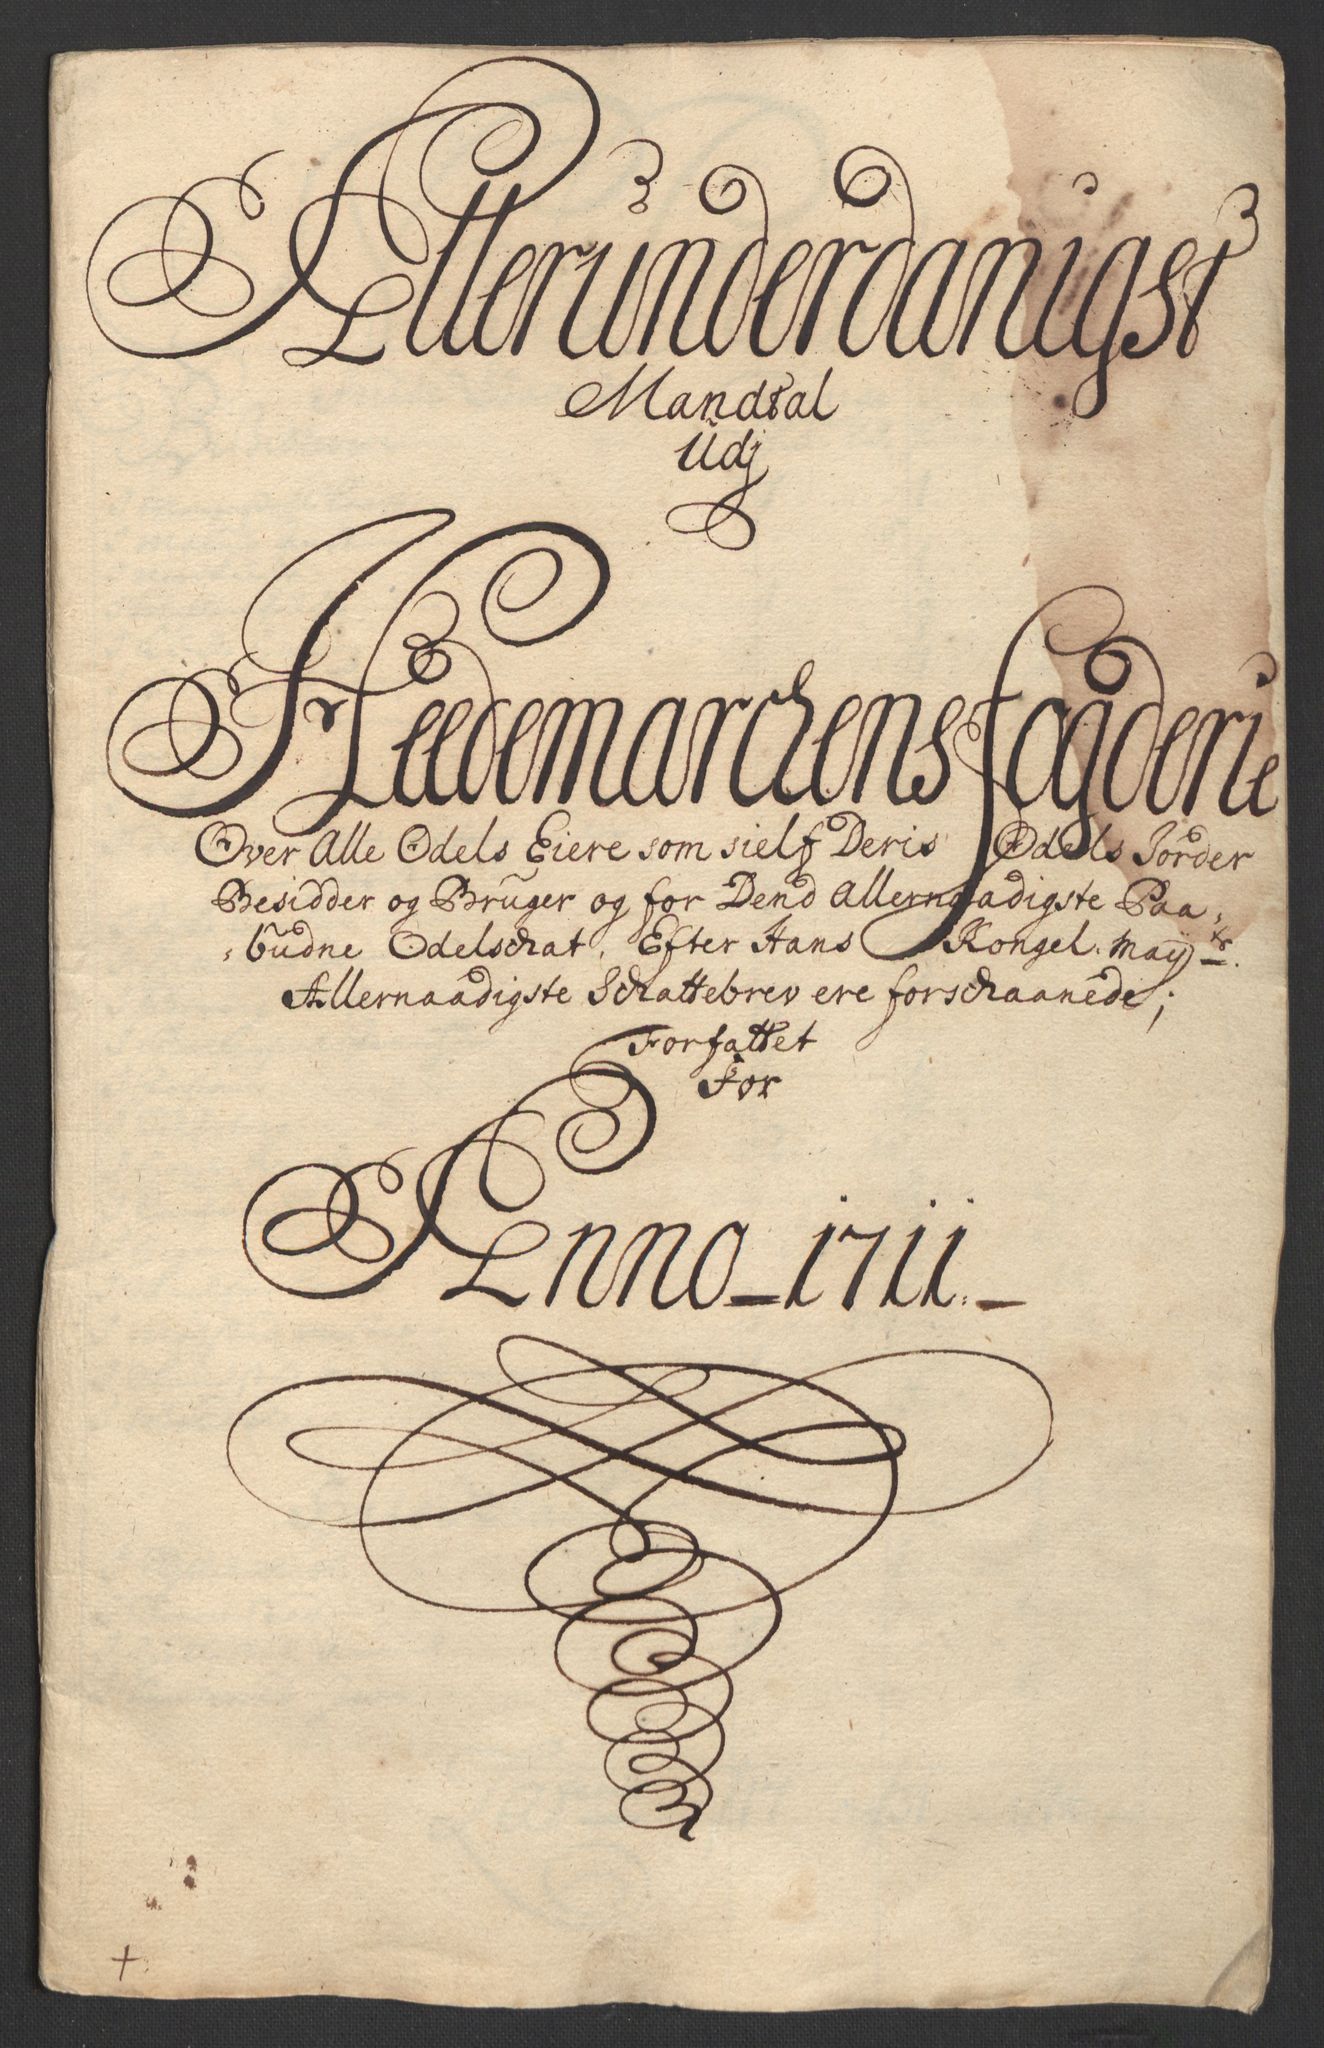 Allerunderdanigst
Mandtal
Udj
Heedemarchens fogderie
Over Alle Odels Eiere som sielf Deris Odels Jorder
Besidder og Bruger og for Dend Allernaadigste Paa-
-budne Odelschat, Efter Hans Kongel: Mayts.
Allernaadigste Schattebrev ere forschaanede;
Forfattet
For
Anno 1711.